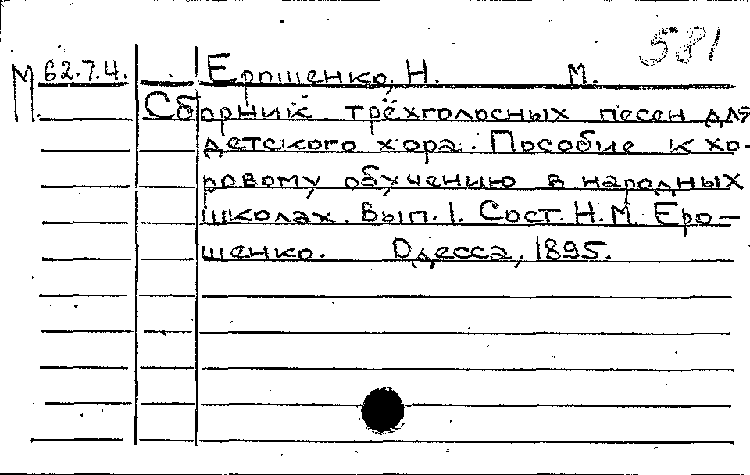 581
М 62.7.4. Ерошенко, Н. М.
Сборник трёхголосных песен для
детского хора. Пособие к хо-
ровому обучению в народных
школах. Вып. 1. Сост. Н.М. Еро-
шенко. Одесса, 1895.